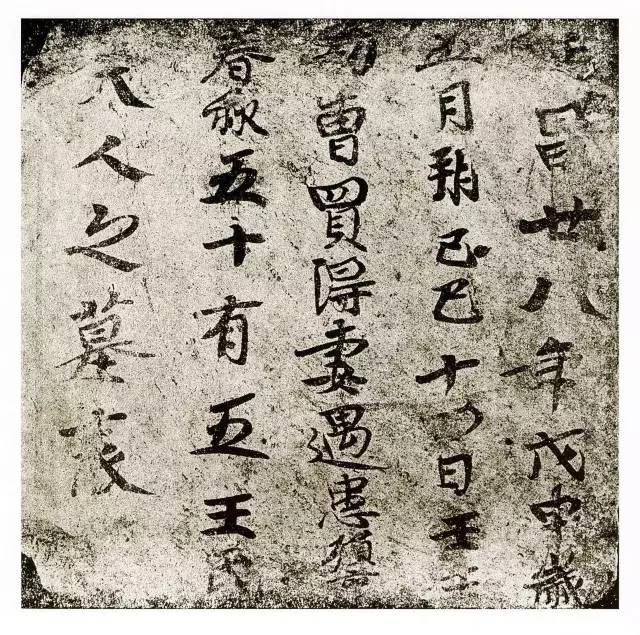 昌廿八年戊申歲
五月朔己巳十日壬
曹買得妻遇患殞
春秋五十有五王氏
夫人之墓表